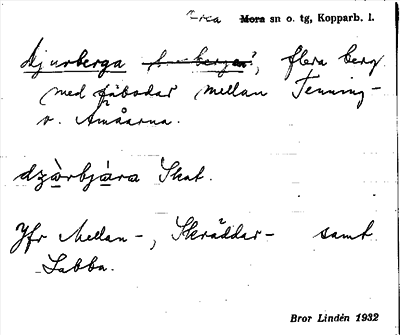 Orsa Mora sn o. tg, Kopparb. l.
Djurberga, flera berg
med fäbodar mellan Tenning-
o. Ämåarna.
dzὰrbjὰra Skat.
Jfr Mellan-, Skräddar- samt
Labba.
Bror Lindén 1932